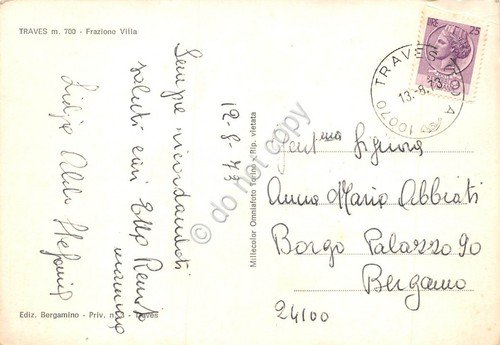 TRAVES m. 700 - Frazione Villa
12-8-73
Sempre ricordandoti
saluti cari Etta Renito
mamma
Lidja Aldo Stefania
Ediz. Bergamino - Priv. n. - Traves
Millecolor Omniafoto Torino - Rip. vietata
LIRE 25
10070 TRAVES
13.-8.73
Gent.ma Signora
Anna Maria Abbiati
Borgo Palazzo 90
Bergamo
24100
© do not copy